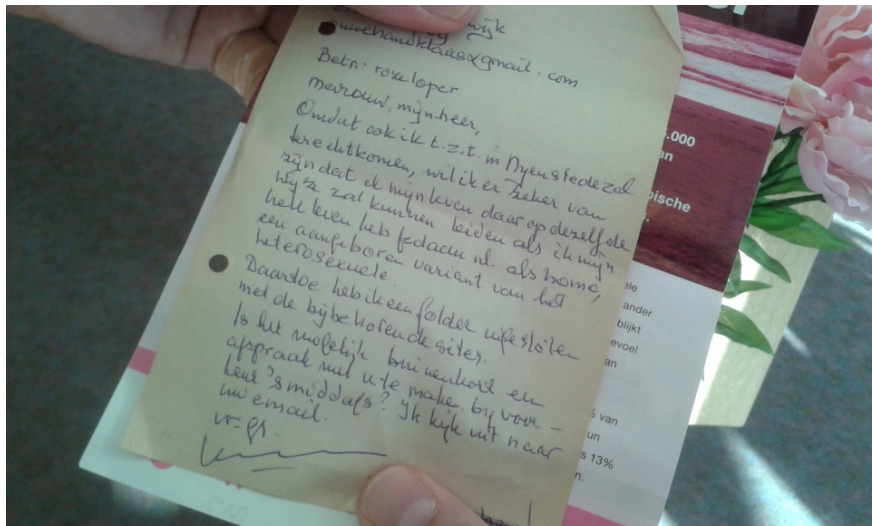 wijk
@gmail.com
Betr: roze loper
mevrouw, mijnheer,
Omdat ook ik t.z.t. in Nyenstede zal
terechtkomen, wil ik er zeker van
zijn dat ik mijn leven daar op dezelfde
wijze zal kunnen leiden als ik mijn
hele leven heb gedaan nl. als homo,
een aangeboren variant van het
heterosexuele
Daartoe heb ik een folder ingesloten
met de bijbehorende sites.
Is het mogelijk binnenkort een
afspraak met u te maken by voor-
keur 's middags? Ik kijk uit naar
uw email.
vr. gr.
.000
an
ische
ele
ander
blijkt
evoel
an
% van
un
s 13%
n.